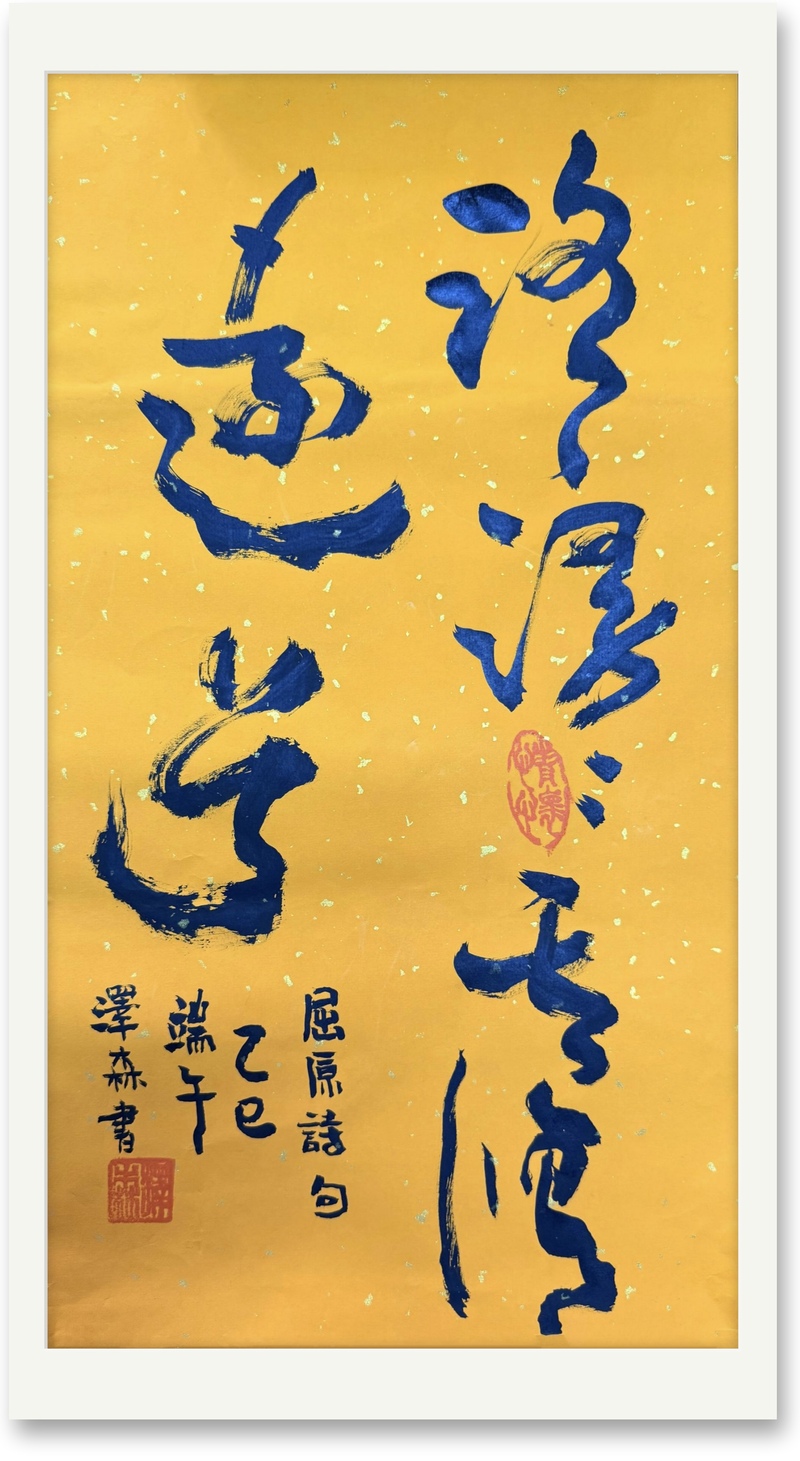 路漫々其修
遠兮
屈原詩句
乙巳
端午
澤森書